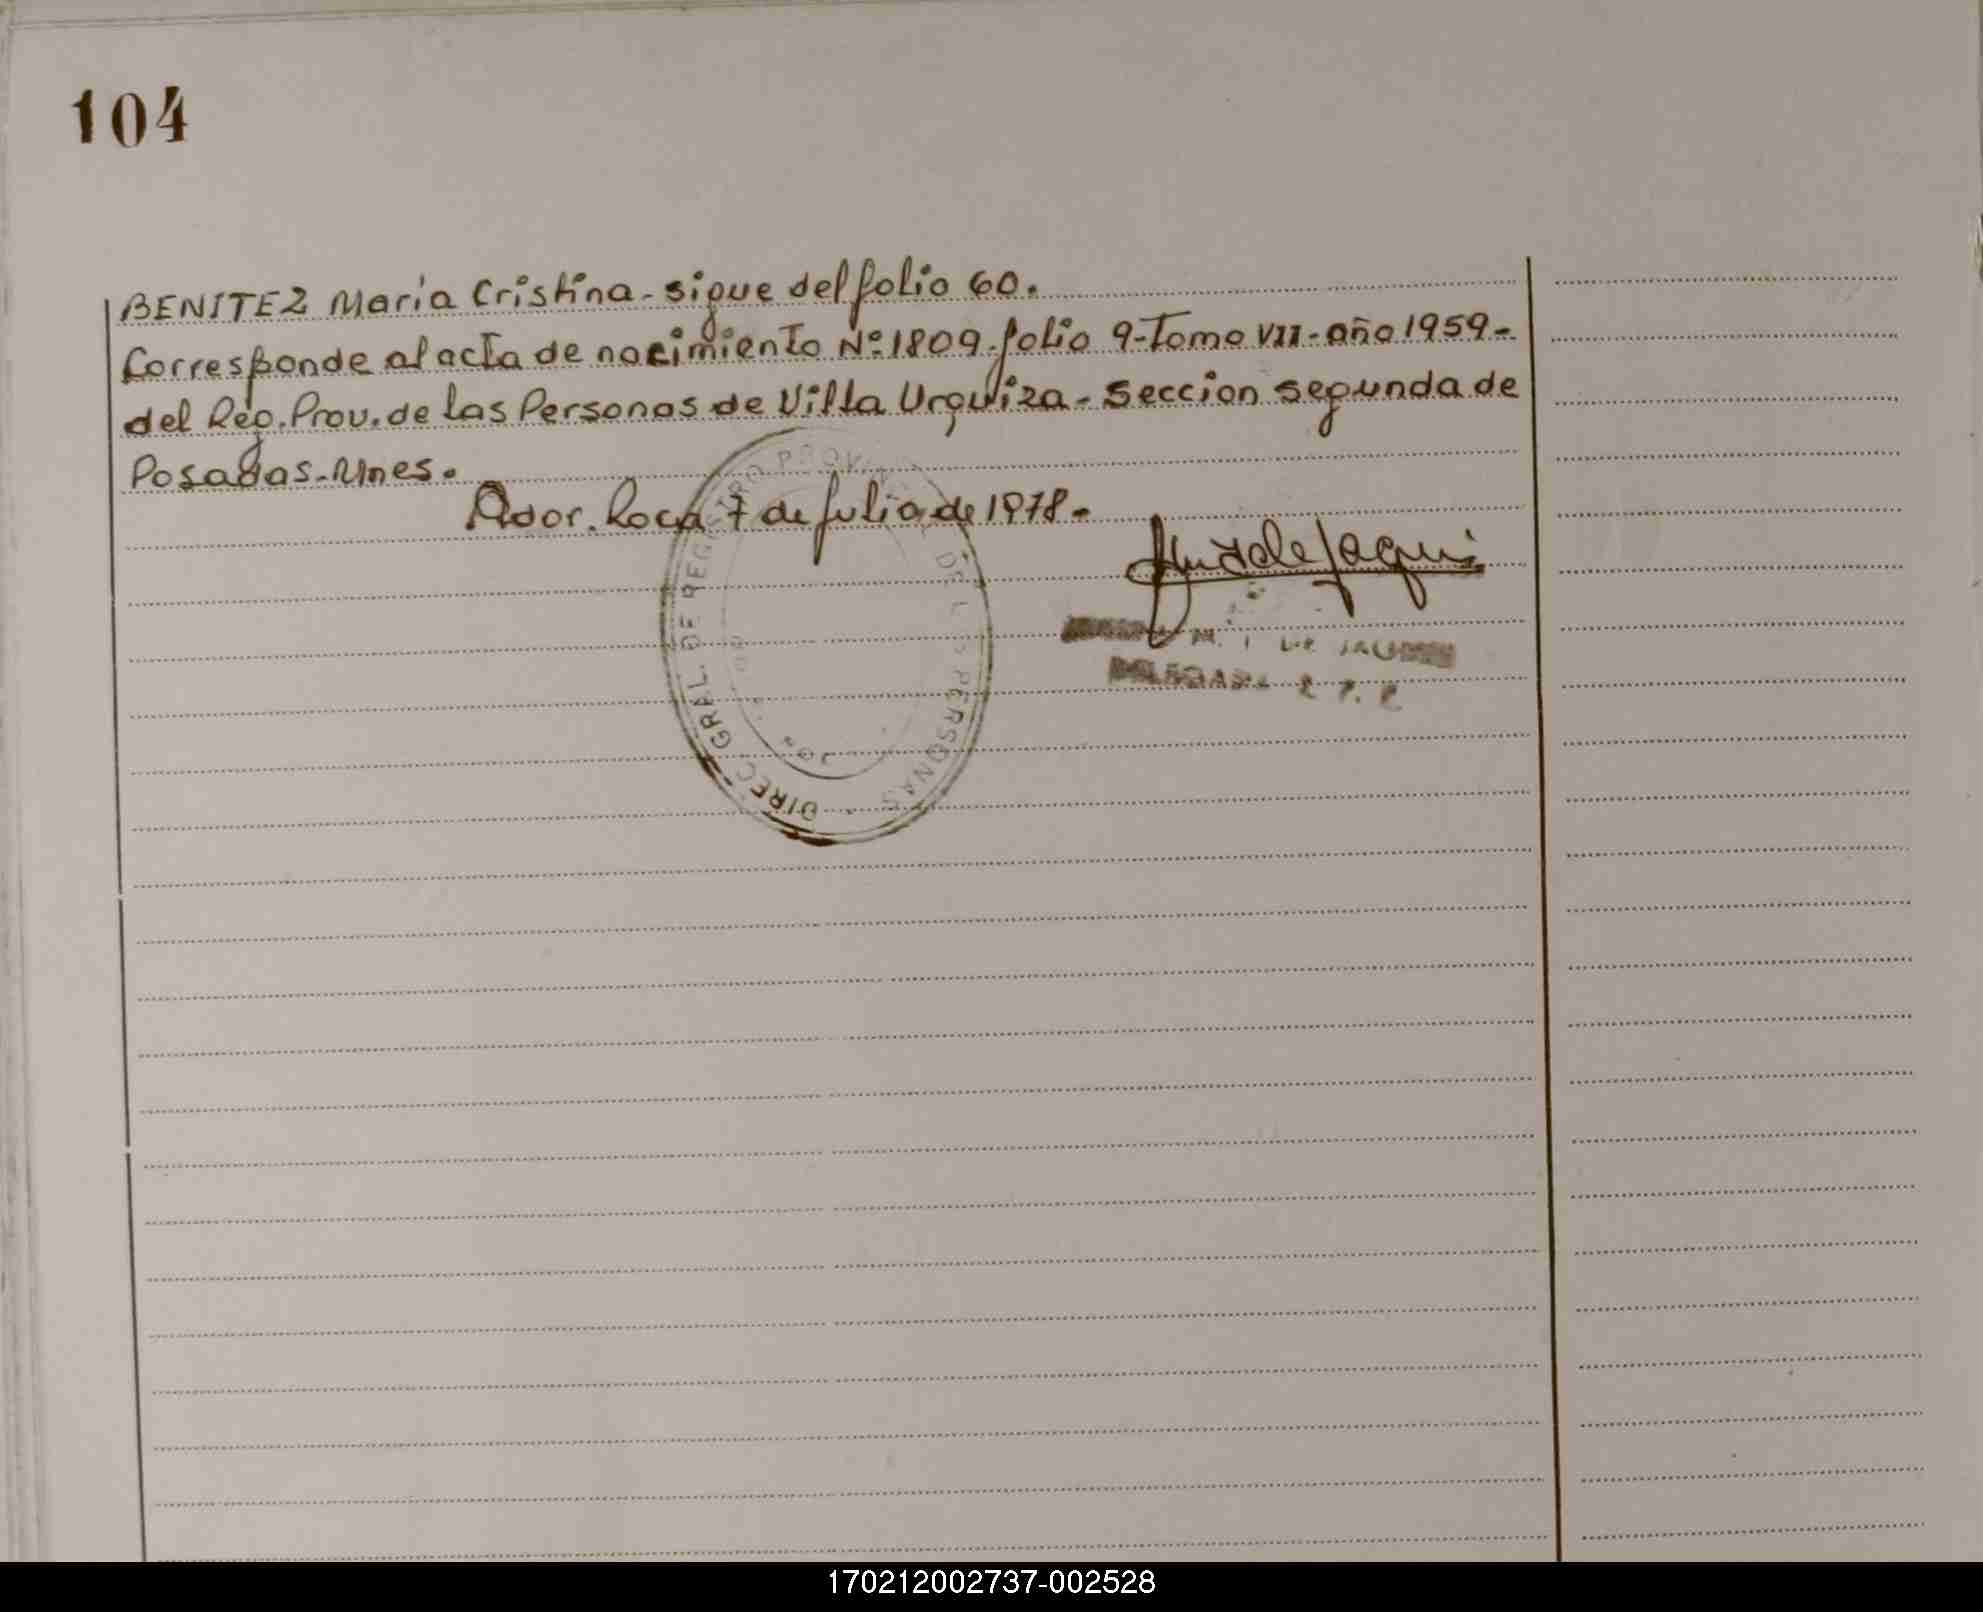 104
BENITEZ María Cristina - sigue del folio 60.
Corresponde al acta de nacimiento Nº 1809 - folio 9 - Tomo VII - año 1959 -
del Reg. Prov. de las Personas de Villa Urquiza - Seccion segunda de
Posadas - Mnes.
Gdor. Roca 7 de julio de 1978 -
DIREC. GRAL. DE REGISTRO PROV DE L S PERSONAS
170212002737-002528